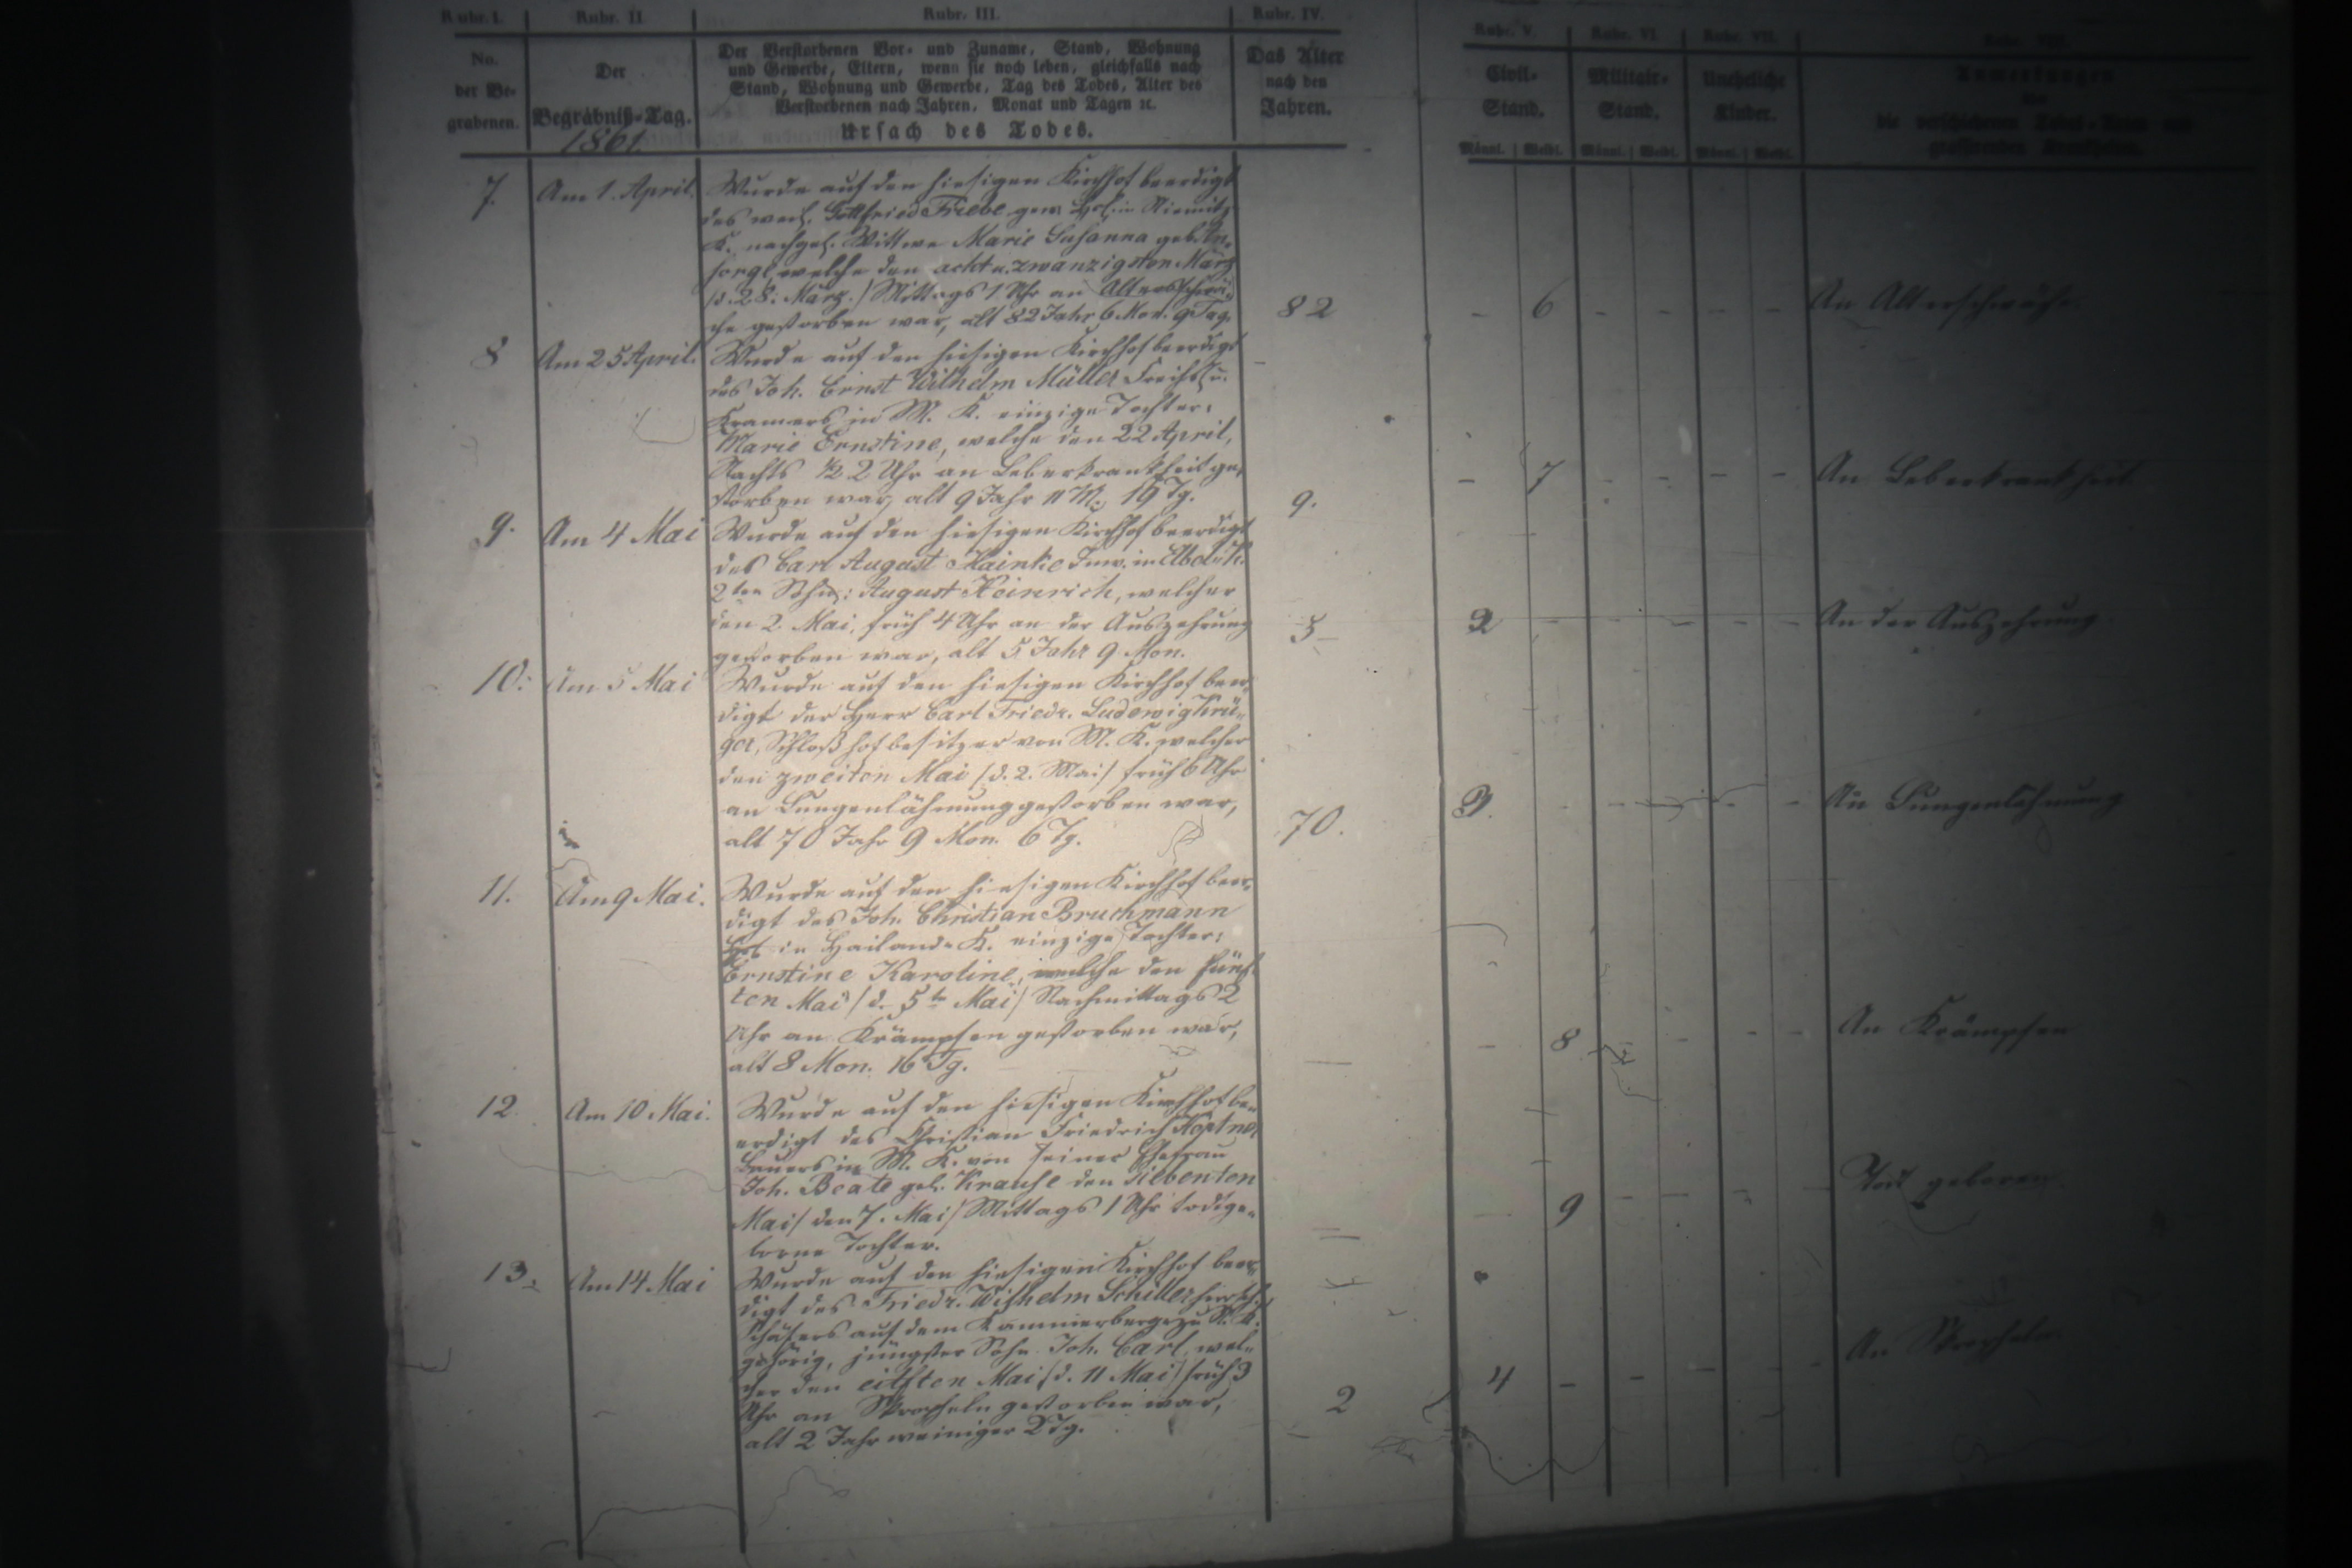 Rubr. I. Rubr. II. Rubr. III. Rubr. IV. Rubr. V. Rubr. VI. Rubr. VII. Rubr. VIII.
No. der Be- grabenen.
Der Begräbniß-Tag. 1861.
Der Verstorbenen Vor- und Zuname, Stand, Wohnung
und Gewerbe, Eltern, wenn sie noch leben, gleichfalls nach
Stand, Wohnung und Gewerbe, Tag des Todes, Alter des
Verstorbenen nach Jahren, Monat und Tagen ꝛc.
Ursach des Todes.
Das Alter nach den Jahren.
Civil- Stand. Männl. Weibl.
Militair- Stand. Männl. Weibl.
Uneheliche Kinder. Männl. Weibl.
Anmerkungen
über
die verschiedenen Todes-Arten und
grassirenden Krankheiten.
7. Am 1. April. Wurde auf den hiesigen Kirchhof beerdigt
des weil. Gottfried Friebe gew. in
K. nachgel. Wittwe Marie Susanna geb.
welche den acht u. zwanzigsten März
/d. 28. März./ Mittags 1 Uhr an Altersschwä-
che gestorben war, alt 82 Jahr 6 Mon. 9 Tag. 82 - 6 - - - - An Altersschwäche.
8 Am 25 April. Wurde auf den hiesigen Kirchhof beerdigt
des Joh. Ernst Wilhelm Müller u.
Kramers in M. K. einzige Tochter:
Marie Ernstine, welche den 22 April,
Nachts ½ 2 Uhr an Leberkrankheit ge-
storben war, alt 9 Jahr 11 M. 19 Tg. 9. - 7 - - - - An Leberkrankheit.
9. Am 4 Mai Wurde auf den hiesigen Kirchhof beerdigt
des Carl August Hainke Inw. in
2ten Sohn: August Heinrich, welcher
den 2 Mai, früh 4 Uhr an der Auszehrung
gestorben war, alt 5 Jahr 9 Mon. 5 2 - - - - - An der Auszehrung
10. Am 5 Mai Wurde auf den hiesigen Kirchhof beer-
digt der Herr Carl Friedr. Ludewig Krü-
ger, Schloßhofbesitzer von M. K. welcher
den zweiten Mai /d. 2. Mai/ früh 6 Uhr
an Lungenlähmung gestorben war,
alt 70 Jahr 9 Mon. 6 Tg. 70. 3. - - - - - An Lungenlähmung
11. Am 9 Mai. Wurde auf den hiesigen Kirchhof beer-
digt des Joh. Christian Bruchmann
in K. einzige Tochter:
Ernstine Karoline, welche den fünf-
ten Mai /d. 5ten Mai/ Nachmittags 2
Uhr an Krämpfen gestorben war,
alt 8 Mon. 16 Tg. - - 8 - - - An Krämpfen
12 Am 10 Mai. Wurde auf den hiesigen Kirchhof be-
erdigt des Christian Friedrich
Bauers in M. K. von seiner Ehefrau
Joh. Beate geb. Krause den siebenten
Mai /den 7. Mai/ Mittags 1 Uhr todtge-
borne Tochter. - - 9 - - - - Todt geboren
13. Am 14 Mai Wurde auf den hiesigen Kirchhof beer-
digt des Friedr. Wilhelm Schiller
Schäfers auf dem Kammerberge zu
gehörig, jüngster Sohn Joh. Carl, wel-
cher den eilften Mai /d. 11 Mai/ früh 3
Uhr an Skropheln gestorben war,
alt 2 Jahr weniger 2 Tg. 2 4 - - - - An Skropheln